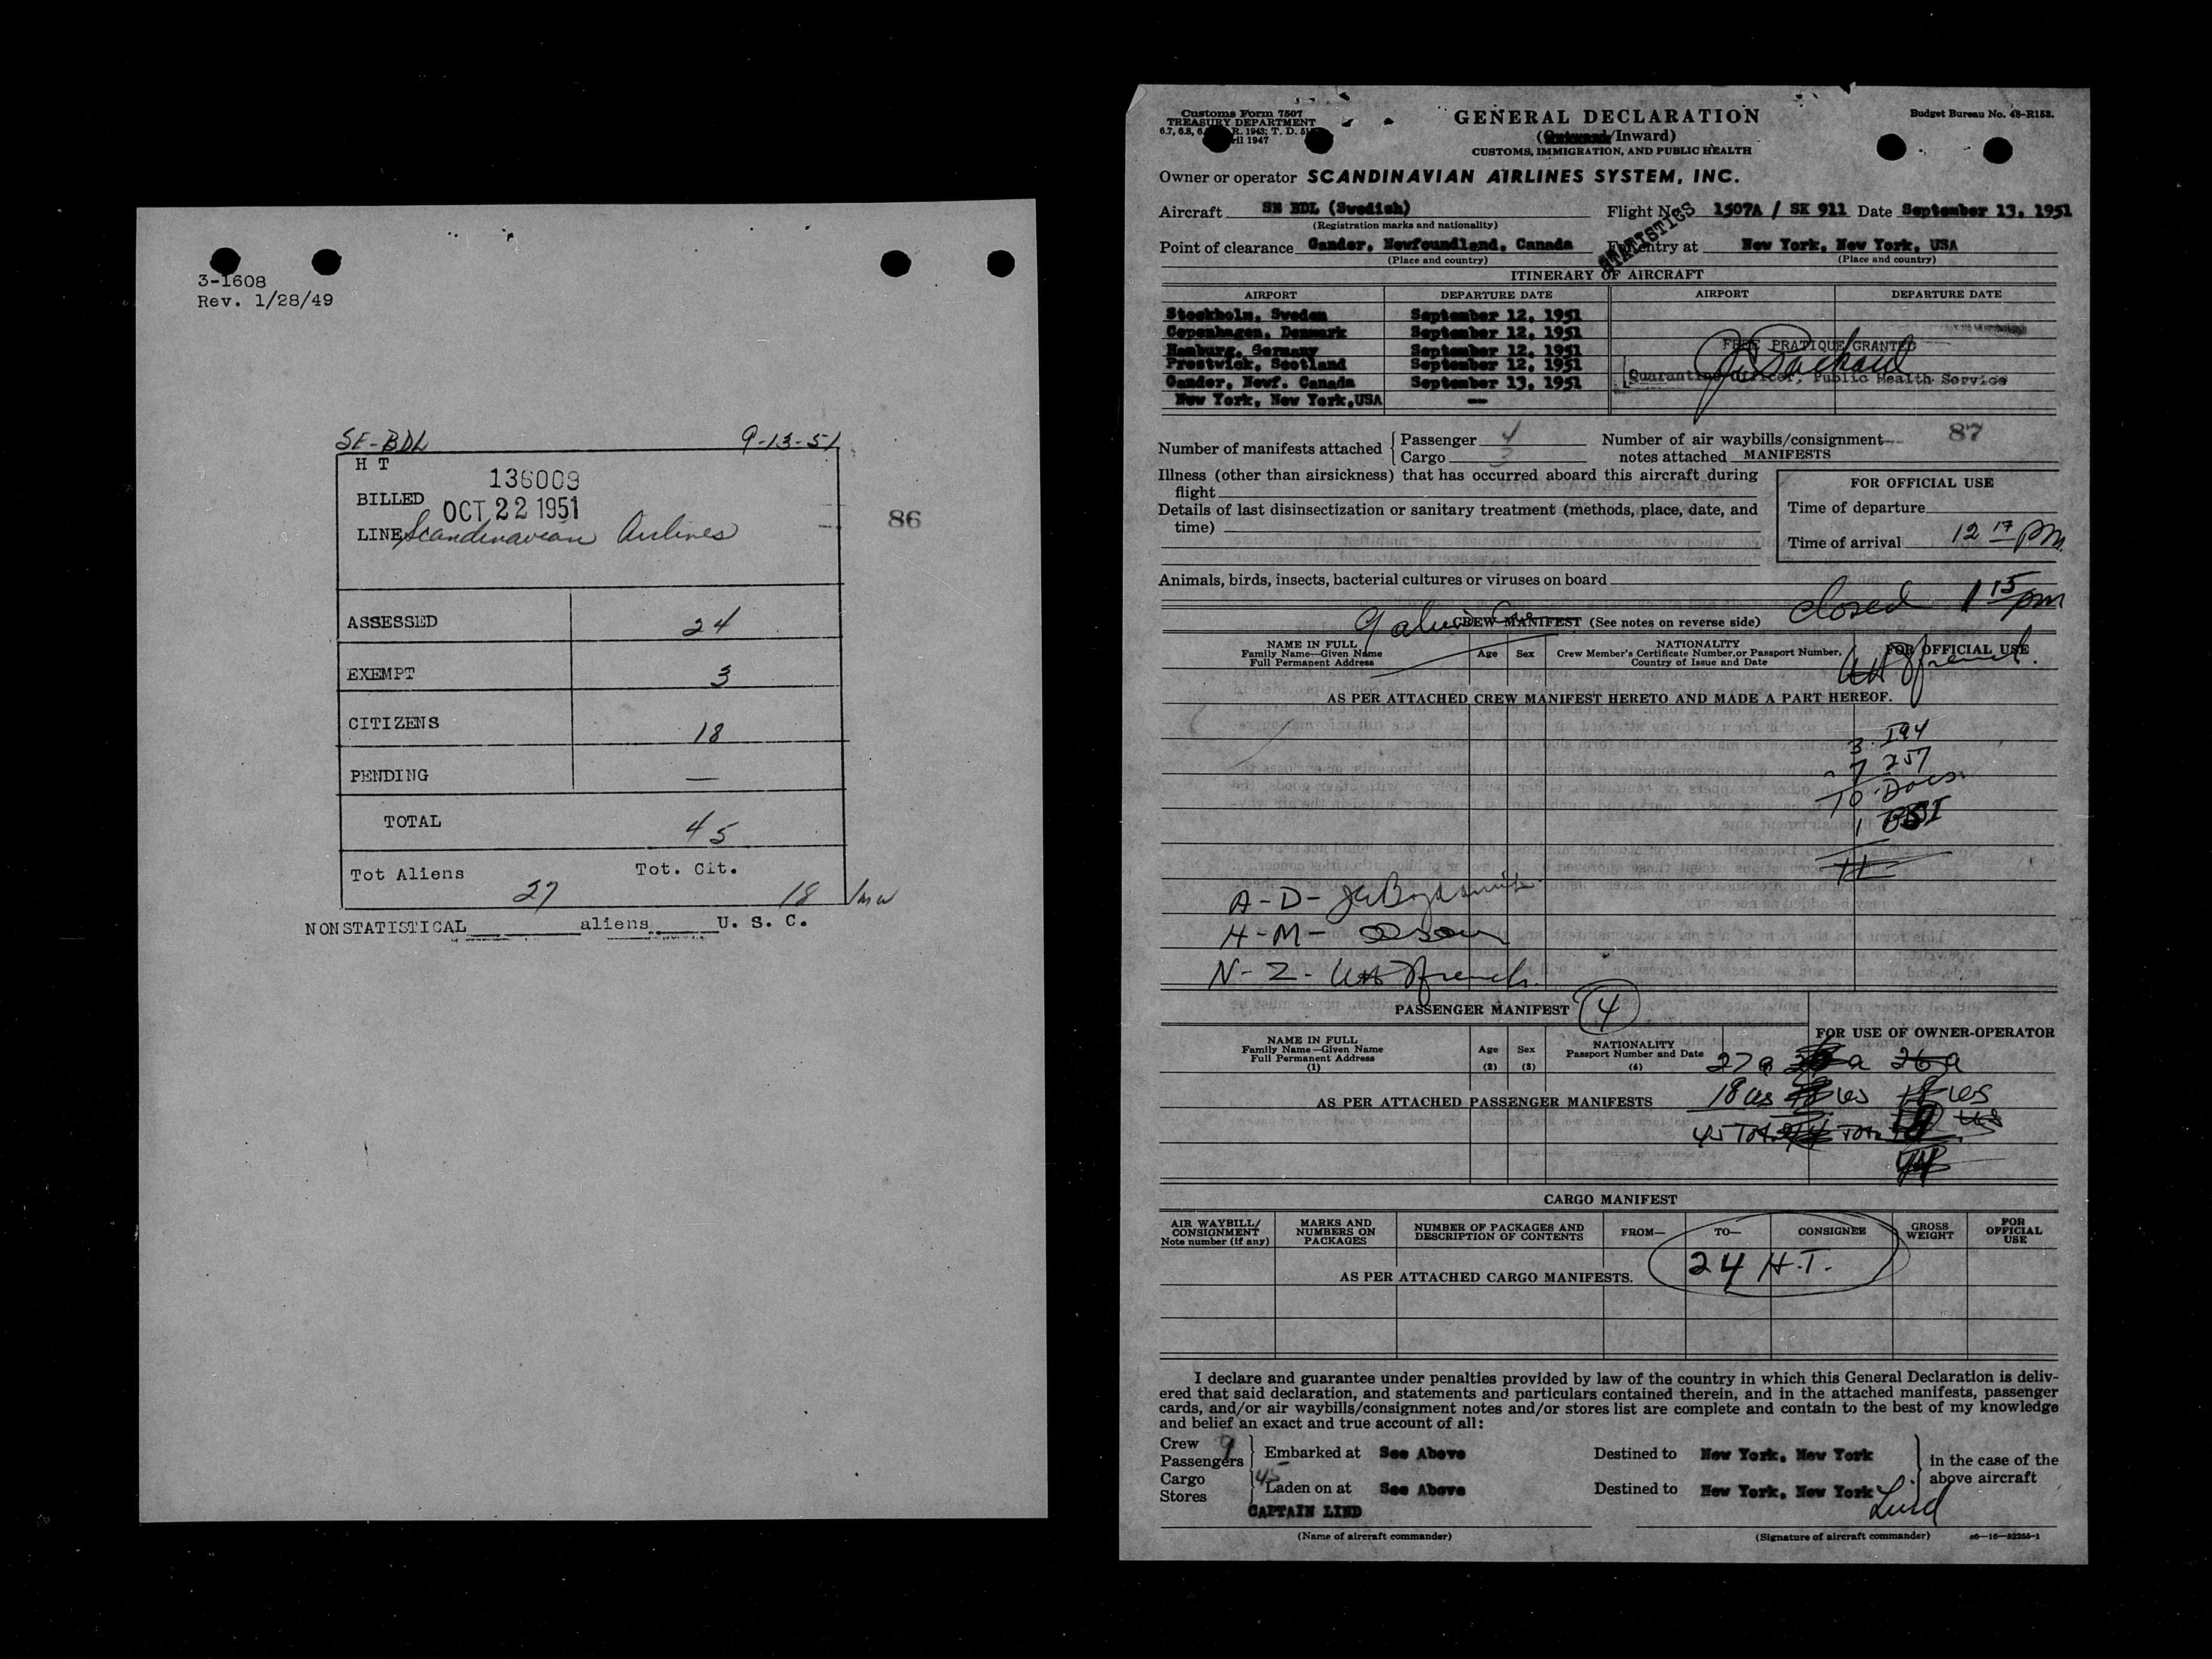 3-1608
Rev. 1/28/49
SE-BDL 9-13-51
H T
136009
BILLED OCT 22 1951
LINE Scandinavian Airlines
86
ASSESSED 24
EXEMPT 3
CITIZENS 18
PENDING —
TOTAL 45
Tot Aliens 27 Tot. Cit. 18
NONSTATISTICAL aliens U. S. C.
Customs Form 7507
TREASURY DEPARTMENT
6.7, 6.8, R. 1943; T. D.
1947
GENERAL DECLARATION
(Outward/Inward)
CUSTOMS, IMMIGRATION, AND PUBLIC HEALTH
Budget Bureau No. 48-R153.
Owner or operator SCANDINAVIAN AIRLINES SYSTEM, INC.
Aircraft SE BDL (Swedish) Flight No. 1507A / SK 911 Date September 13, 1951
(Registration marks and nationality)
STATISTICS
Point of clearance Gander, Newfoundland, Canada For entry at New York, New York, USA
(Place and country) (Place and country)
ITINERARY OF AIRCRAFT
AIRPORT DEPARTURE DATE AIRPORT DEPARTURE DATE
Stockholm, Sweden September 12, 1951
Copenhagen, Denmark September 12, 1951
Hamburg, Germany September 12, 1951
Prestwick, Scotland September 12, 1951
Gander, Newf. Canada September 13, 1951
New York, New York, USA --
FREE PRATIQUE GRANTED
Quarantine Officer, Public Health Service
Number of manifests attached { Passenger 4
Cargo 3
Number of air waybills/consignment
notes attached MANIFESTS
87
Illness (other than airsickness) that has occurred aboard this aircraft during
flight
Details of last disinsectization or sanitary treatment (methods, place, date, and
time)
FOR OFFICIAL USE
Time of departure
Time of arrival 12 17 PM.
Animals, birds, insects, bacterial cultures or viruses on board
closed 1 15 pm
CREW MANIFEST (See notes on reverse side)
NAME IN FULL
Family Name—Given Name
Full Permanent Address
Age Sex
NATIONALITY
Crew Member's Certificate Number, or Passport Number,
Country of Issue and Date
FOR OFFICIAL USE
WH French.
AS PER ATTACHED CREW MANIFEST HERETO AND MADE A PART HEREOF.
3 I94
7 257
10 Docs.
1 BSI
11
A-D-
H-M- Olson
N-Z- WH French.
PASSENGER MANIFEST 4
NAME IN FULL
Family Name—Given Name
Full Permanent Address
(1)
Age
(2)
Sex
(3)
NATIONALITY
Passport Number and Date
(4)
FOR USE OF OWNER-OPERATOR
27 a a 26 a
AS PER ATTACHED PASSENGER MANIFESTS 18 us us us
45 Tot
CARGO MANIFEST
AIR WAYBILL/
CONSIGNMENT
Note number (if any)
MARKS AND
NUMBERS ON
PACKAGES
NUMBER OF PACKAGES AND
DESCRIPTION OF CONTENTS
FROM— TO— CONSIGNEE
GROSS
WEIGHT
FOR
OFFICIAL
USE
AS PER ATTACHED CARGO MANIFESTS. 24 H.T.
I declare and guarantee under penalties provided by law of the country in which this General Declaration is deliv-
ered that said declaration, and statements and particulars contained therein, and in the attached manifests, passenger
cards, and/or air waybills/consignment notes and/or stores list are complete and contain to the best of my knowledge
and belief an exact and true account of all:
Crew 9
Passengers 45
Cargo
Stores
Embarked at See Above Destined to New York, New York
Laden on at See Above Destined to New York, New York
in the case of the
above aircraft
CAPTAIN LIND Lind
(Name of aircraft commander) (Signature of aircraft commander) 16—52255-1